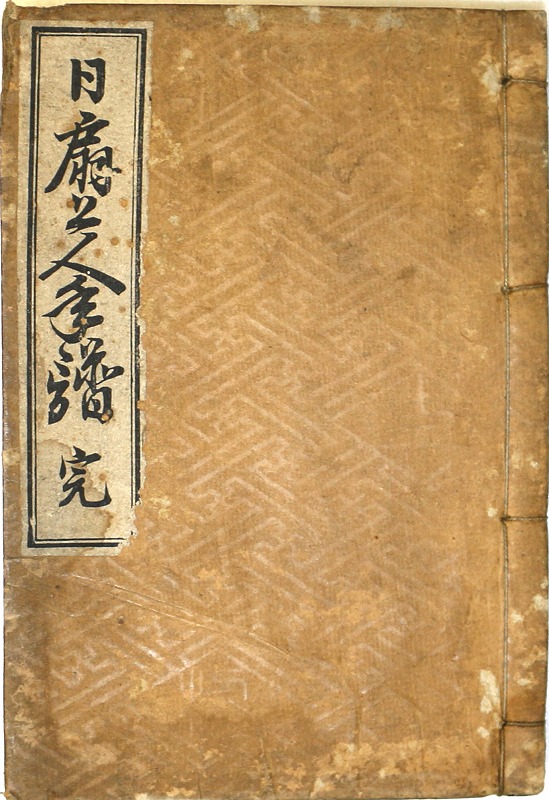 日扇上人年譜 完